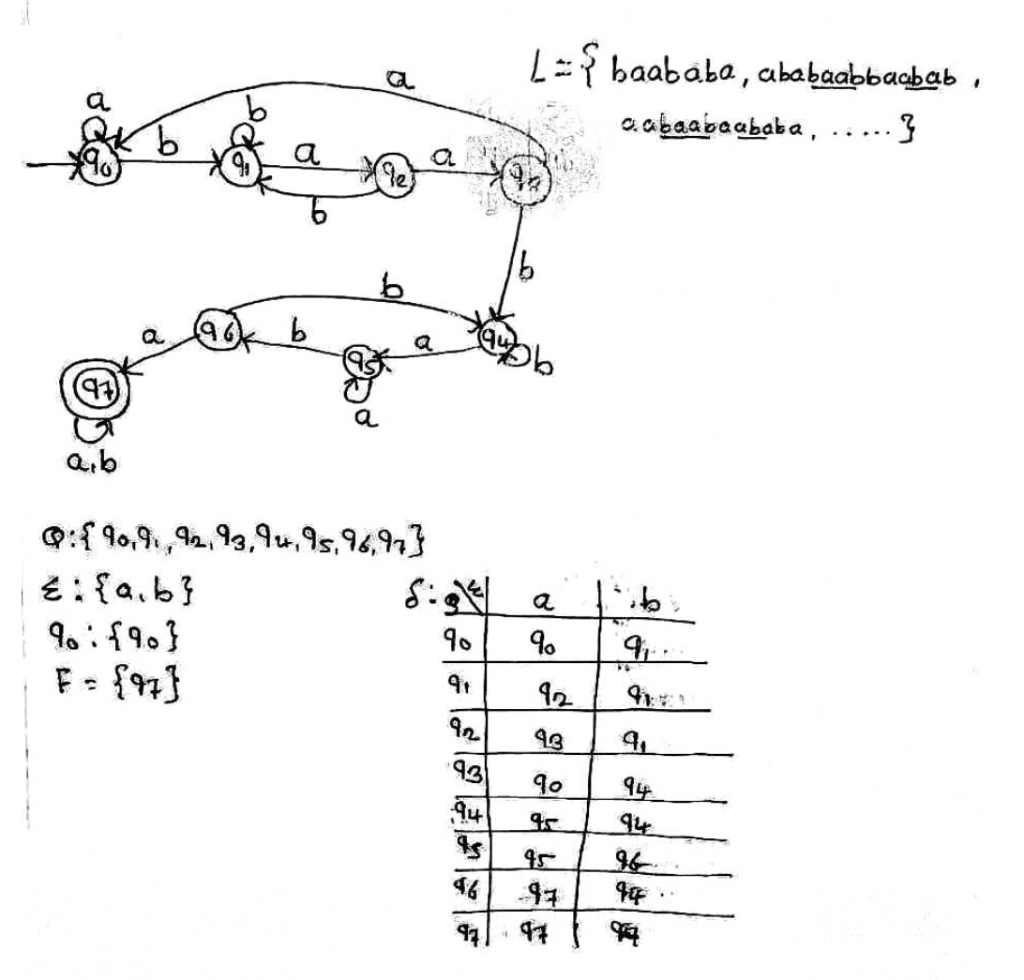 L = { baababa, ababaabbaabab ,
aabaabaababa, ..... }
a
a
b
q0
b
q1
a
q2
a
b
b
b
q6
b
q4
a
b
q5
a
b
q7
a
a,b
Q:{q0,q1,q2,q3,q4,q5,q6,q7}
Σ:{a,b}
q0:{q0}
F = {q7}
δ: Q\Σ a b
q0 q0 q1
q1 q2 q1
q2 q3 q1
q3 q0 q4
q4 q5 q4
q5 q5 q6
q6 q7 q4
q7 q7